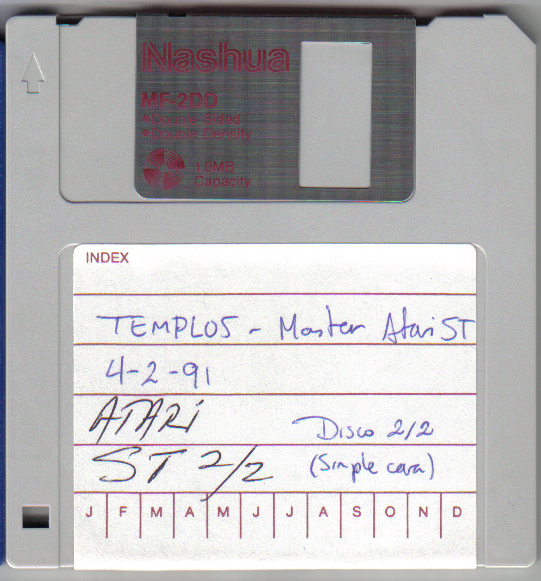 Nashua
MF-2DD
Double-Sided
Double-Density
1.0MB
Capacity
INDEX
TEMPLOS - Master Atari ST
4-2-91
ATARI
ST 2/2
Disco 2/2
(Simple cara)
J F M A M J J A S O N D